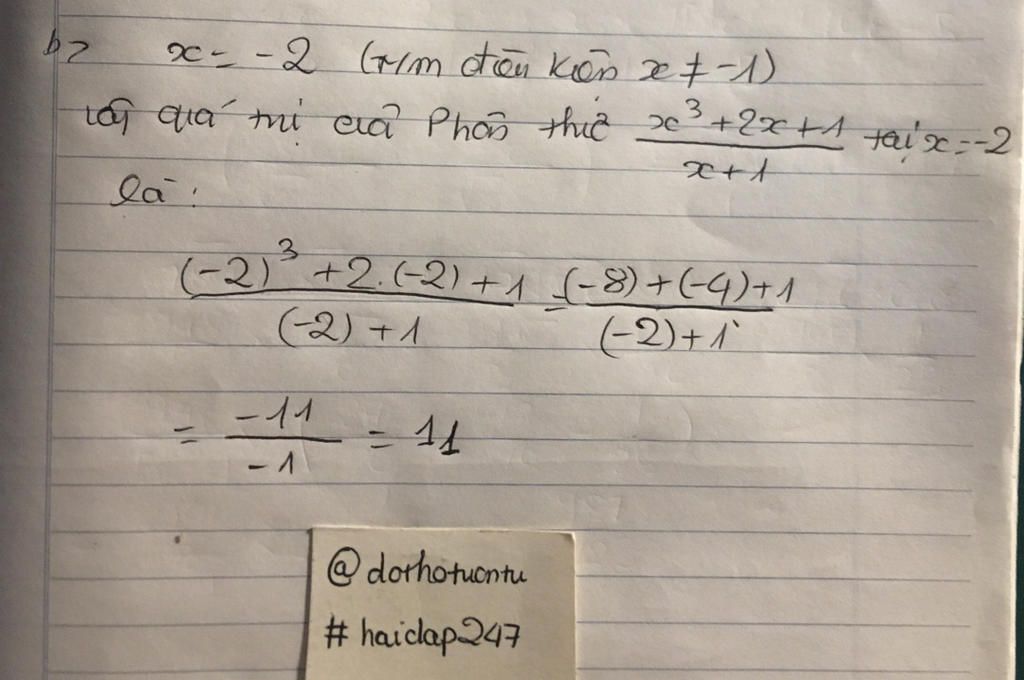 b> x = -2 (t/m điều kiện x ≠ -1)
Vậy quá trị của Phân thức \frac{x³+2x+1}{x+1} tại x=-2
là:
\frac{(-2)³ + 2.(-2) + 1}{(-2) + 1} = \frac{(-8)+(-4)+1}{(-2)+1}
= \frac{-11}{-1} = 11
@dothotuontu
# haidap247